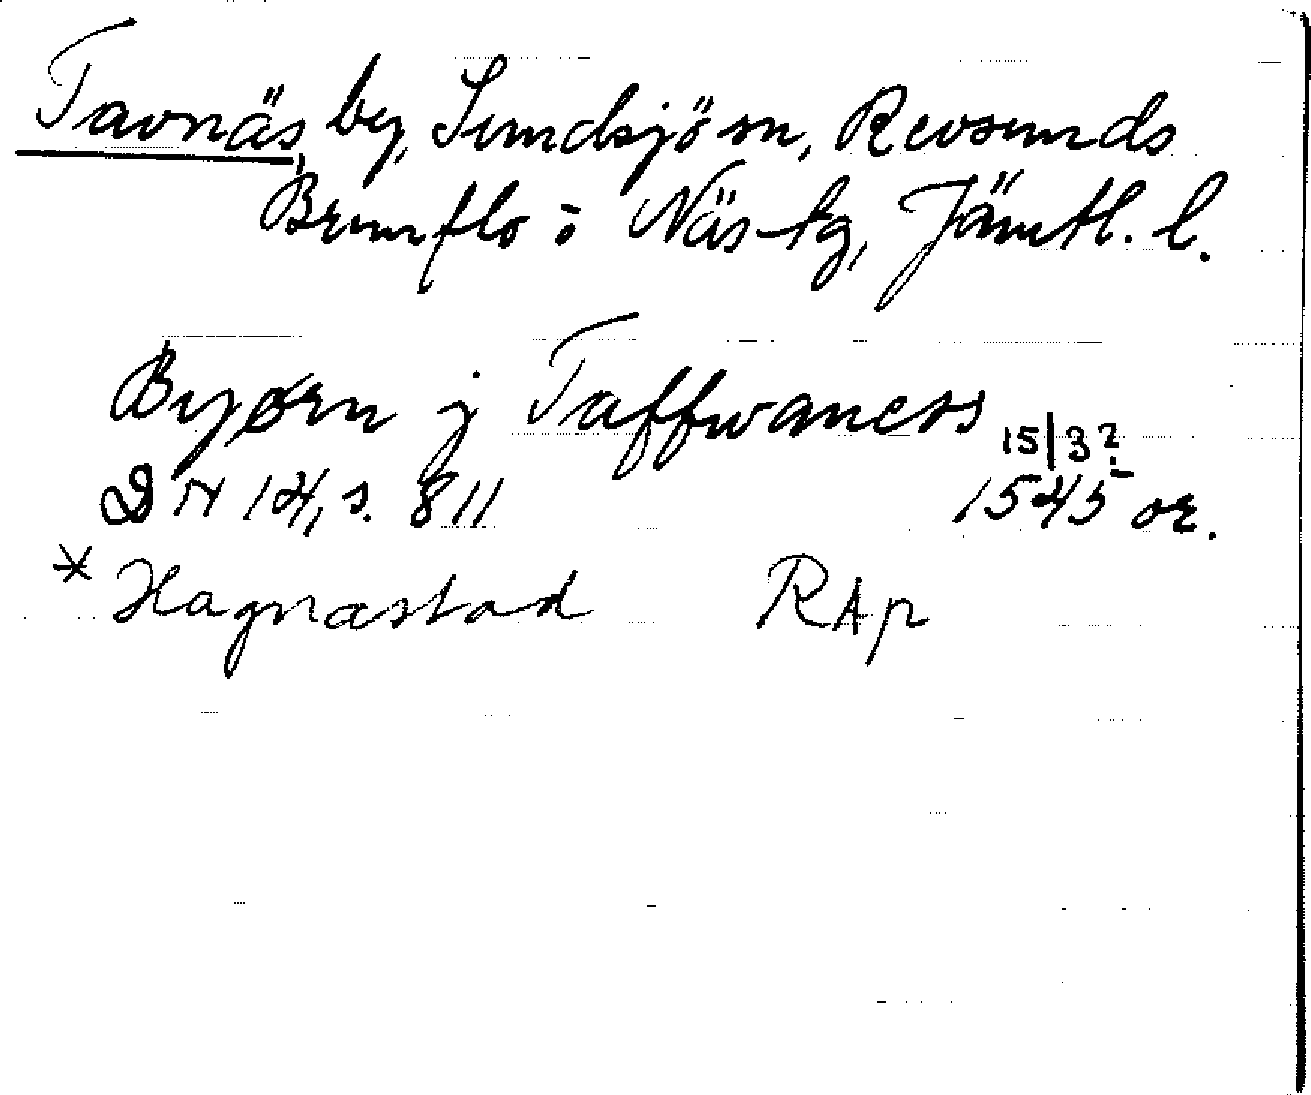 Tavnäs, by, Sundsjö sn, Revsunds
Brunflo o Näs tg, Jämtl. l.
Byørn j Taffwaness 15/3 ?
DN 14, s. 811 1545 or.
* Hagnastad RAp